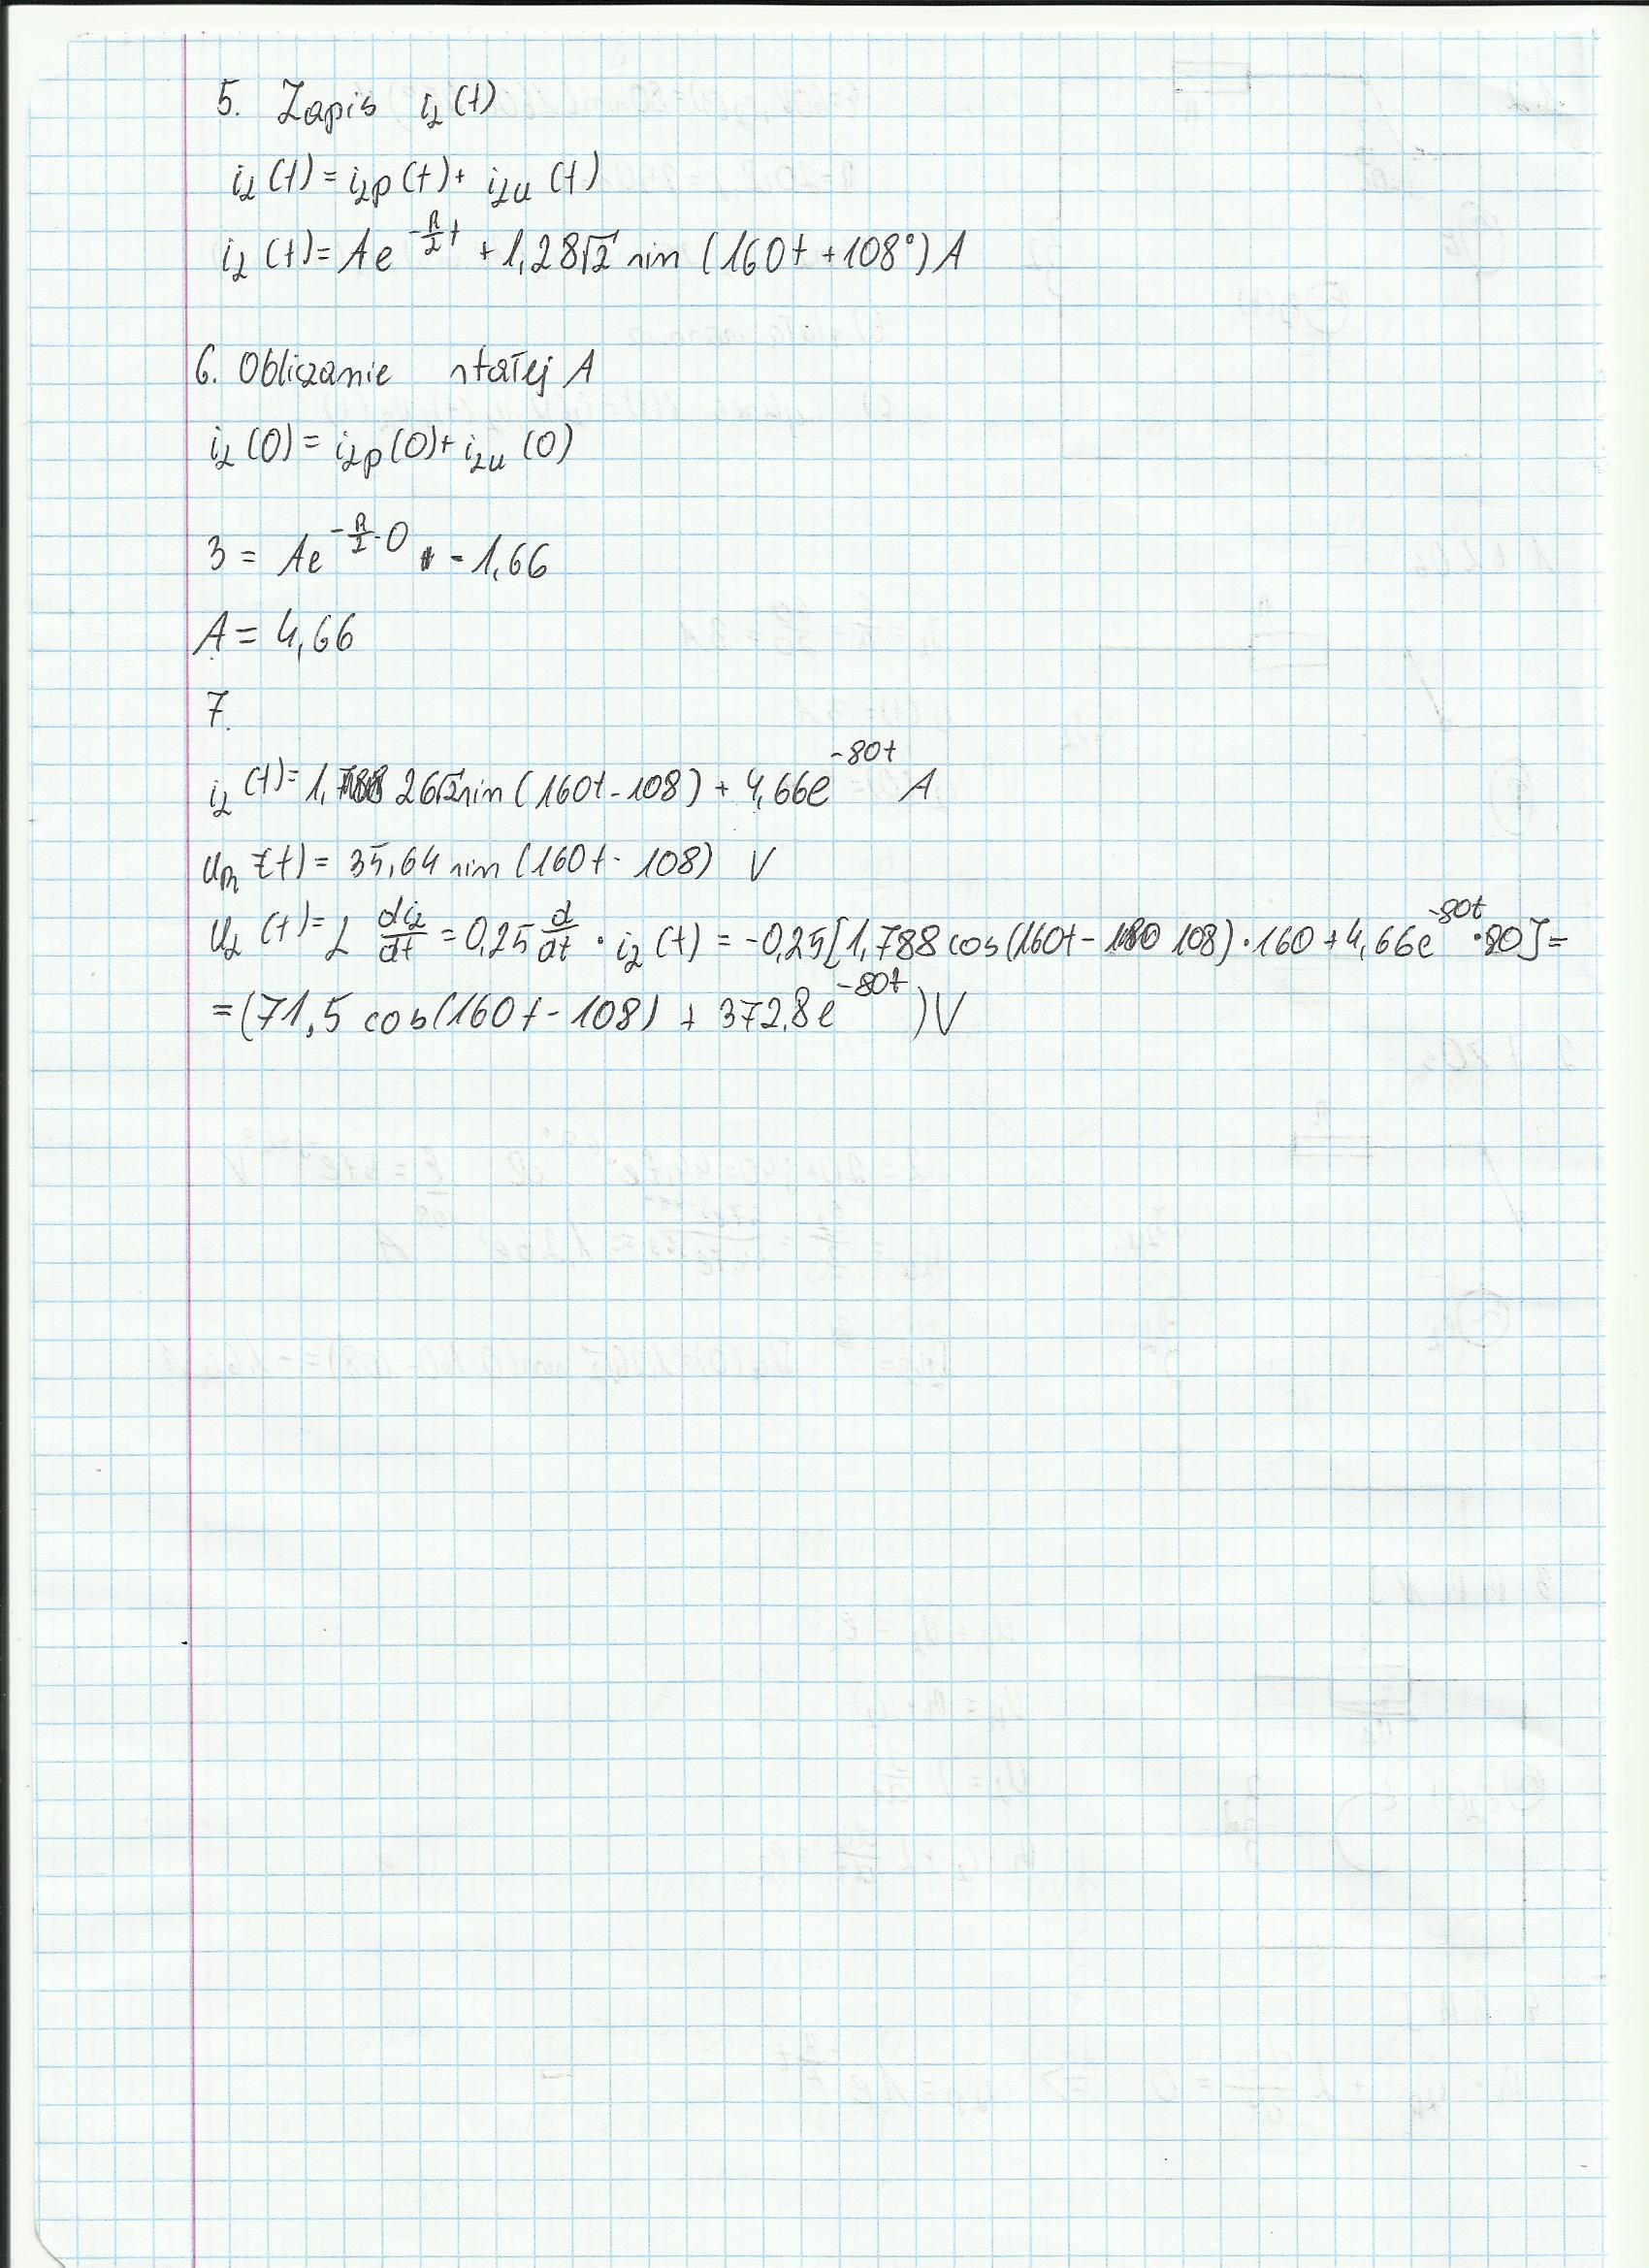 5. Zapis i₂(t)
i₂(t) = i₂p(t) + i₂u(t)
i₂(t) = Ae^(-R/L t) + 1,28√2 sin (160t + 108°) A
6. Obliczanie stałej A
i₂(0) = i₂p(0) + i₂u(0)
3 = Ae^(-R/L·0) - 1,66
A = 4,66
7.
i₂(t) = 1,26√2 sin (160t - 108) + 4,66e^(-80t) A
u_R(t) = 35,64 sin (160t - 108) V
u₂(t) = L di₂/dt = 0,25 d/dt · i₂(t) = -0,25[1,788 cos(160t - 108)·160 + 4,66e^(-80t)·80] =
= (71,5 cos(160t - 108) + 372,8e^(-80t)) V